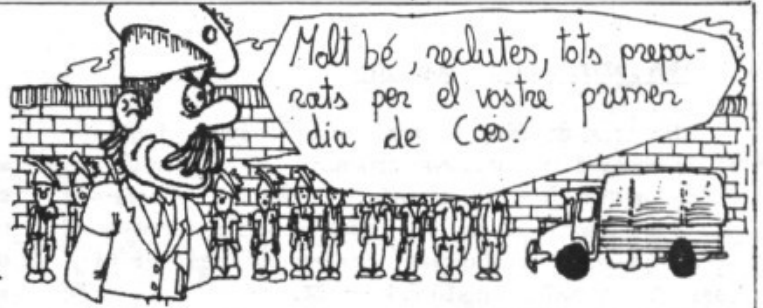 Molt bé, reclutes, tots prepa-
rats per el vostre primer
dia de Coes!